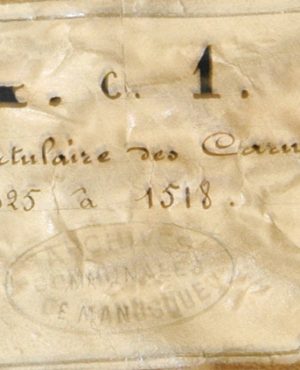 . C. 1.
rtulaire des Carm
525 à 1518.
ARCHIVES
COMMUNALES
DE MANOSQUE